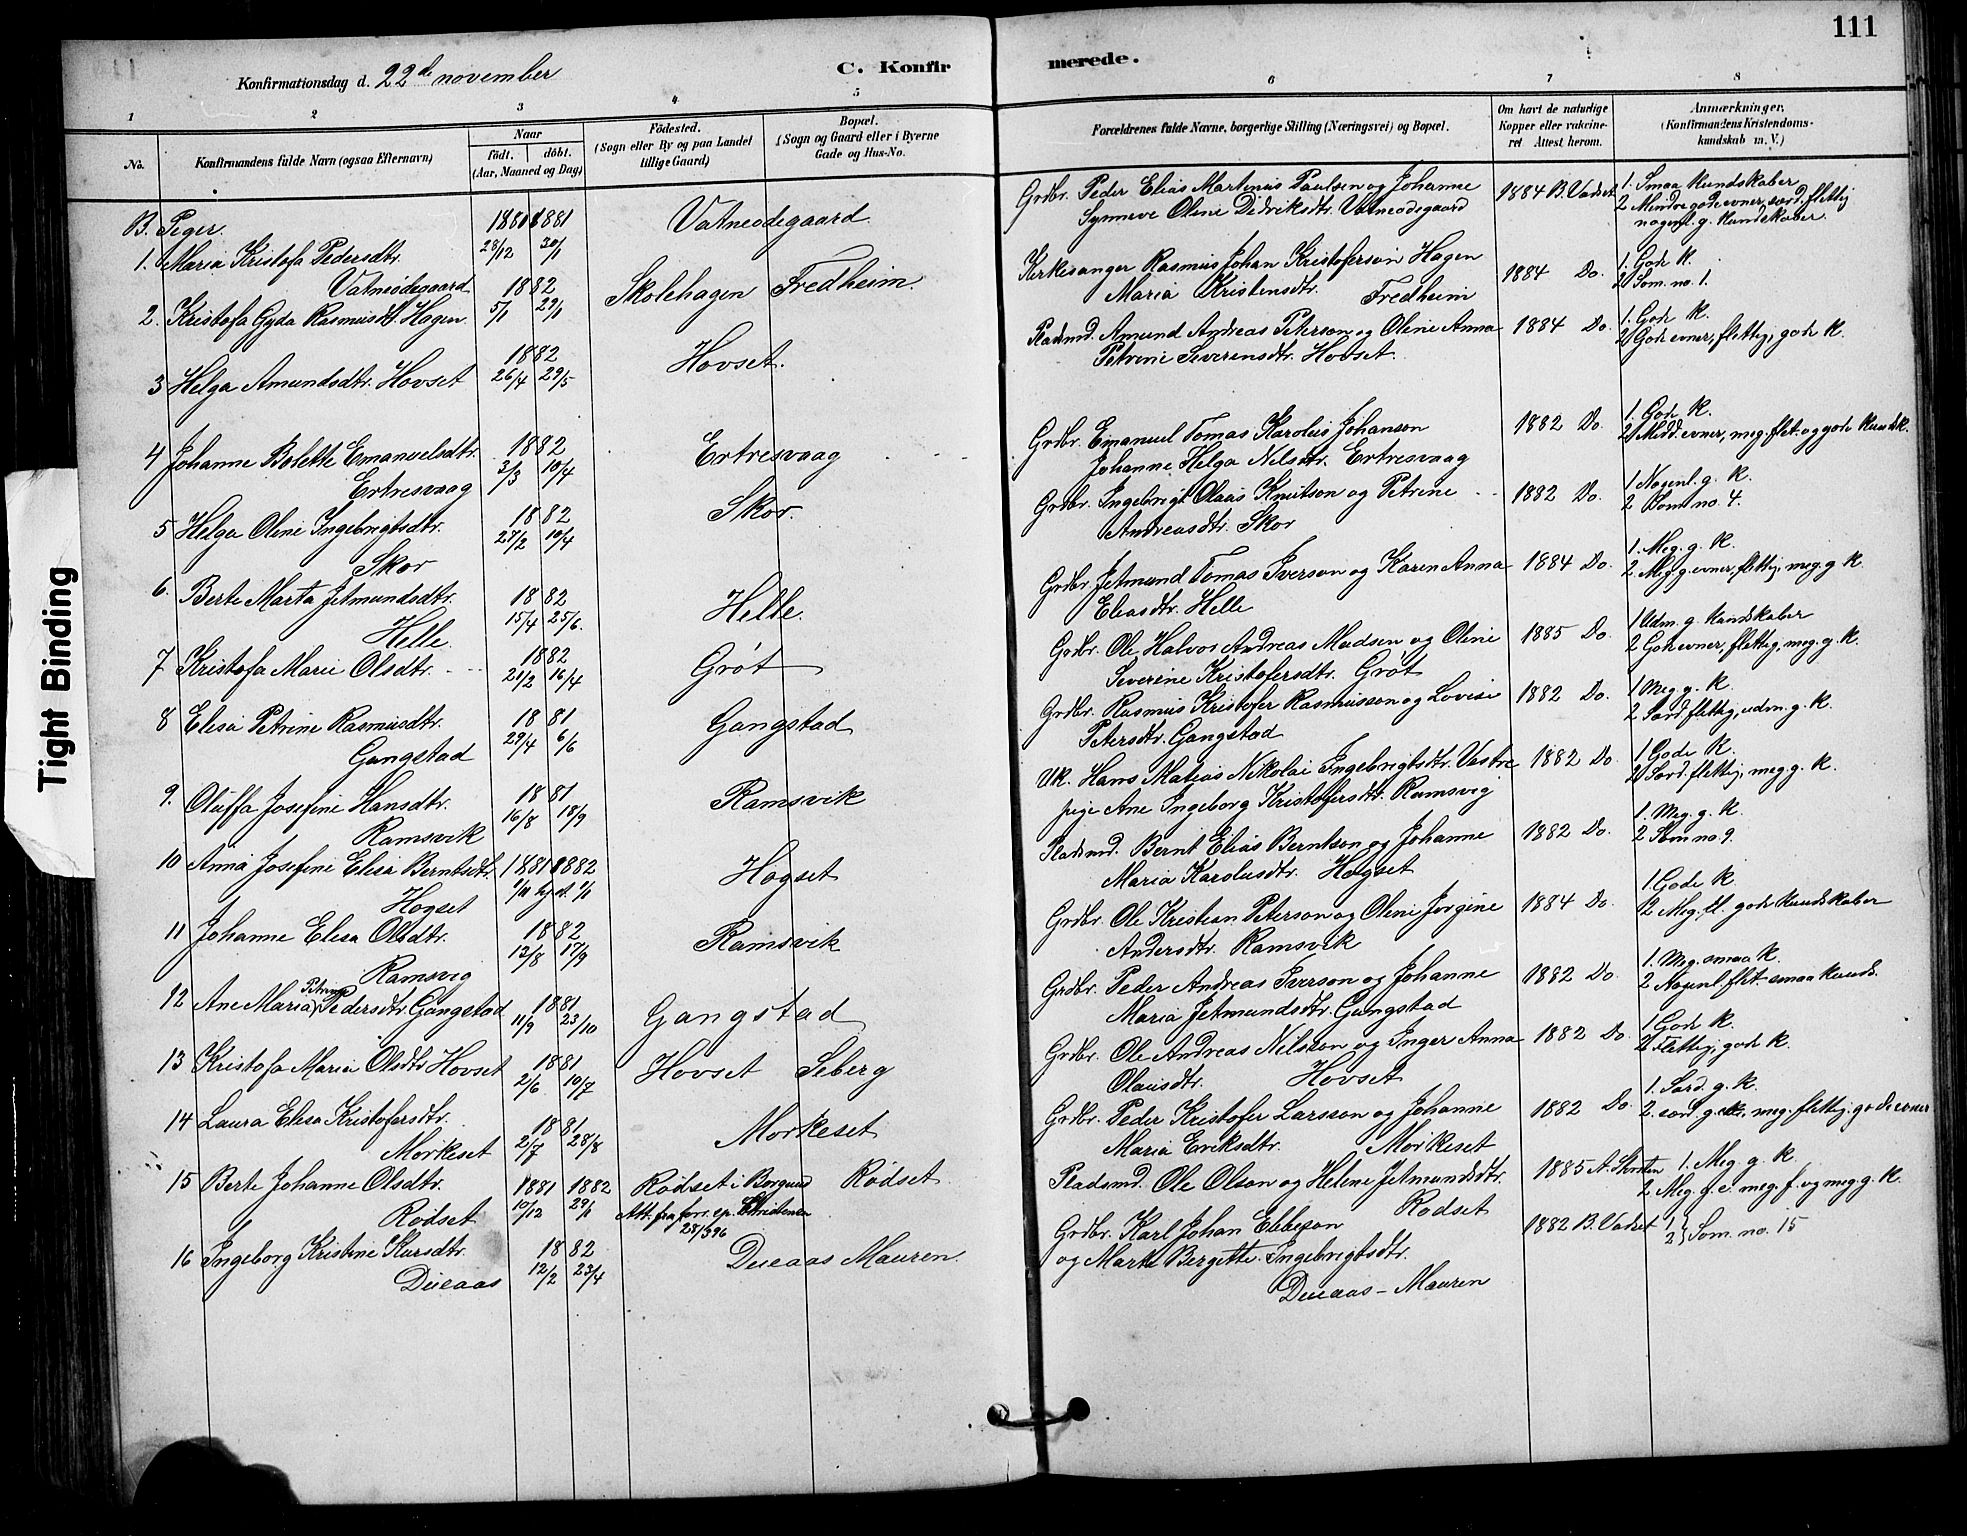 111
Konfirmationsdag d. 22de november
C. Konfirmerede.
1 2 3 4 5 6 7 8
No.
Konfirmandens fulde Navn (ogsaa Efternavn)
Naar
födt. döbt.
(Aar, Maaned og Dag)
Födested.
(Sogn eller By og paa Landet
tillige Gaard)
Bopæl.
(Sogn og Gaard eller i Byerne
Gade og Hus-No.
Forældrenes fulde Navne, borgerlige Stilling (Næringsvei) og Bopæl.
Om havt de naturlige
Kopper eller vakcine-
ret. Attest herom.
Anmærkninger,
(Konfirmandens Kristendoms-
kundskab m. V.)
Tight Binding
B. Piger.
1. Maria Kristofa Pedersdtr. Vatneødegaard 1880 28/12 1881 30/1 Vatneødegaard
Grdbr. Peder Elias Martinus Paulsen og Johanne
Synneve Oline Didriksdtr. Vatneødegaard
1884 B. Vadset
1. Smaa Kundskaber
2 Mindre gode evner, særd. flettig
nogenl. g. Kundskaber.
2. Kristofa Gyda Rasmusdt. Hagen 1882 5/1 29/1 Skolehagen Fredheim
Kirkesanger Rasmus Johan Kristoferson Hagen
Maria Kristensdtr. Fredheim
1884 Do.
1. Gode K.
2) Som no. 1.
3 Helga Amundsdtr. Hovset 1882 26/4 29/5 Hovset.
Pladsmd. Amund Andreas Peterson og Oline Anna
Petrine Severensdtr. Hovset
1884 Do.
1. Gode K.
2) Gode evner, flettig, gode K.
4 Johanne Bolette Emanuelsdtr. Ertresvaag 1882 3/3 10/4 Ertresvaag
Grdbr. Emanuel Tomas Karolus Johanson
Johanne Helga Nilsdtr. Ertresvaag
1882 Do.
1. Gode K.
2) Midd. evner, meg. flet. og gode Kundsk.
5 Helga Oline Ingebrigtsdtr. Skor 1882 27/2 10/4 Skor.
Grdbr. Ingebrigt Olaus Knutson og Petrine
Andreasdtr. Skor
1882 Do.
1 Nogenl. g. K.
2 Som no 4.
6. Berte Marta Jetmundsdtr. Helle. 1882 15/4 25/6. Helle.
Grdbr. Jetmund Tomas Iverson og Karen Anna
Eliasdtr. Helle
1884 Do.
1. Meg. g. K.
2 Meg. g. evner, flettig, meg. g K.
7 Kristofa Marie Olsdtr. 1882 21/2 16/4 Grøt
Grdbr. Ole Halvor Andreas Madsen og Oline
Severine Kristofersdtr. Grøt
1885 Do.
1 Udm. g. Kundskaber
2 Gode evner, flettig, meg. g. K.
8 Elisa Petrine Rasmusdtr. Gangstad 1881 29/4 6/6 Gangstad
Grdbr. Rasmus Kristofer Rasmusson og Lovise
Petersdtr. Gangstad
1882 Do.
1 Meg. g. K.
2 Særd. flettig, udm. g. K.
9. Oluffa Josefine Hansdtr. Ramsvik 1881 16/8 18/9 Ramsvik
Uk. Hans Matias Nikolai Ingebrigtsdtr. Vestre
pige Ane Ingeborg Kristofersdtr. Ramsvig
1882 Do.
1 Gode K.
2) Særd. flettig, meg. g. K.
10 Anna Josefine Elisa Berntsdtr. Hogset 1881 1882 Hogset
Pladsmd. Bernt Elias Berntson og Johanne
Maria Karolusdtr. Hogset
1882 Do.
1. Meg. g. K.
2 Som no 9.
11 Johanne Elisa Olsdtr. Ramsvig 1882 12/8 17/9 Ramsvik
Grdbr. Ole Kristian Peterson og Oline Jørgine
Andersdtr. Ramsvik
1884 Do.
1. Gode K.
2 Meg. fl. gode Kundskaber
12 Ane Maria Petrine Pedersdtr. Gangstad 1881 11/9 23/10 Gangstad
Grdbr. Peder Andreas Iverson og Johanne
Maria Jetmundsdtr. Gangstad
1882 Do.
1. Meg. smaa K.
2 Nogenl. flet. smaa Kunds.
13 Kristofa Maria Olsdtr Hovset 1881 2/6 10/7 Hovset Seberg
Grdbr. Ole Andreas Nilsson og Inger Anna
Olausdtr. Hovset
1882 Do.
1. Gode K.
2. Flettig, gode K.
14 Laura Elisa Kristofersdtr. Mørkeset 1881 2/7 28/8 Mørkeset
Grdbr. Peder Kristofer Larsson og Johanne
Maria Eriksdtr. Mørkeset
1882 Do.
1. Særd. g. K.
2. særd. g. K. meg. flettig. gode evner
15 Berte Johanne Olsdtr. Rødset 1881 10/12 1882 29/1 Rødset i Borgund Rødset
Att. fra forr. sp. Christensen 28/3 96
Pladsmd. Ole Olson og Helene Jetmundsdtr.
Rødset
1885
1. Meg. g. K.
2. Meg. g. e. meg. f. og meg. g. K.
16 Ingeborg Kristine Karsdtr. Dueaas 1882 12/2 23/4 Dueaas Mauren.
Grdbr. Karl Johan Ebbeson
og Marte Bergitte Ingebrigtsdtr.
Dueaas - Mauren
1882 B. Vadset
1
2} Som no. 15